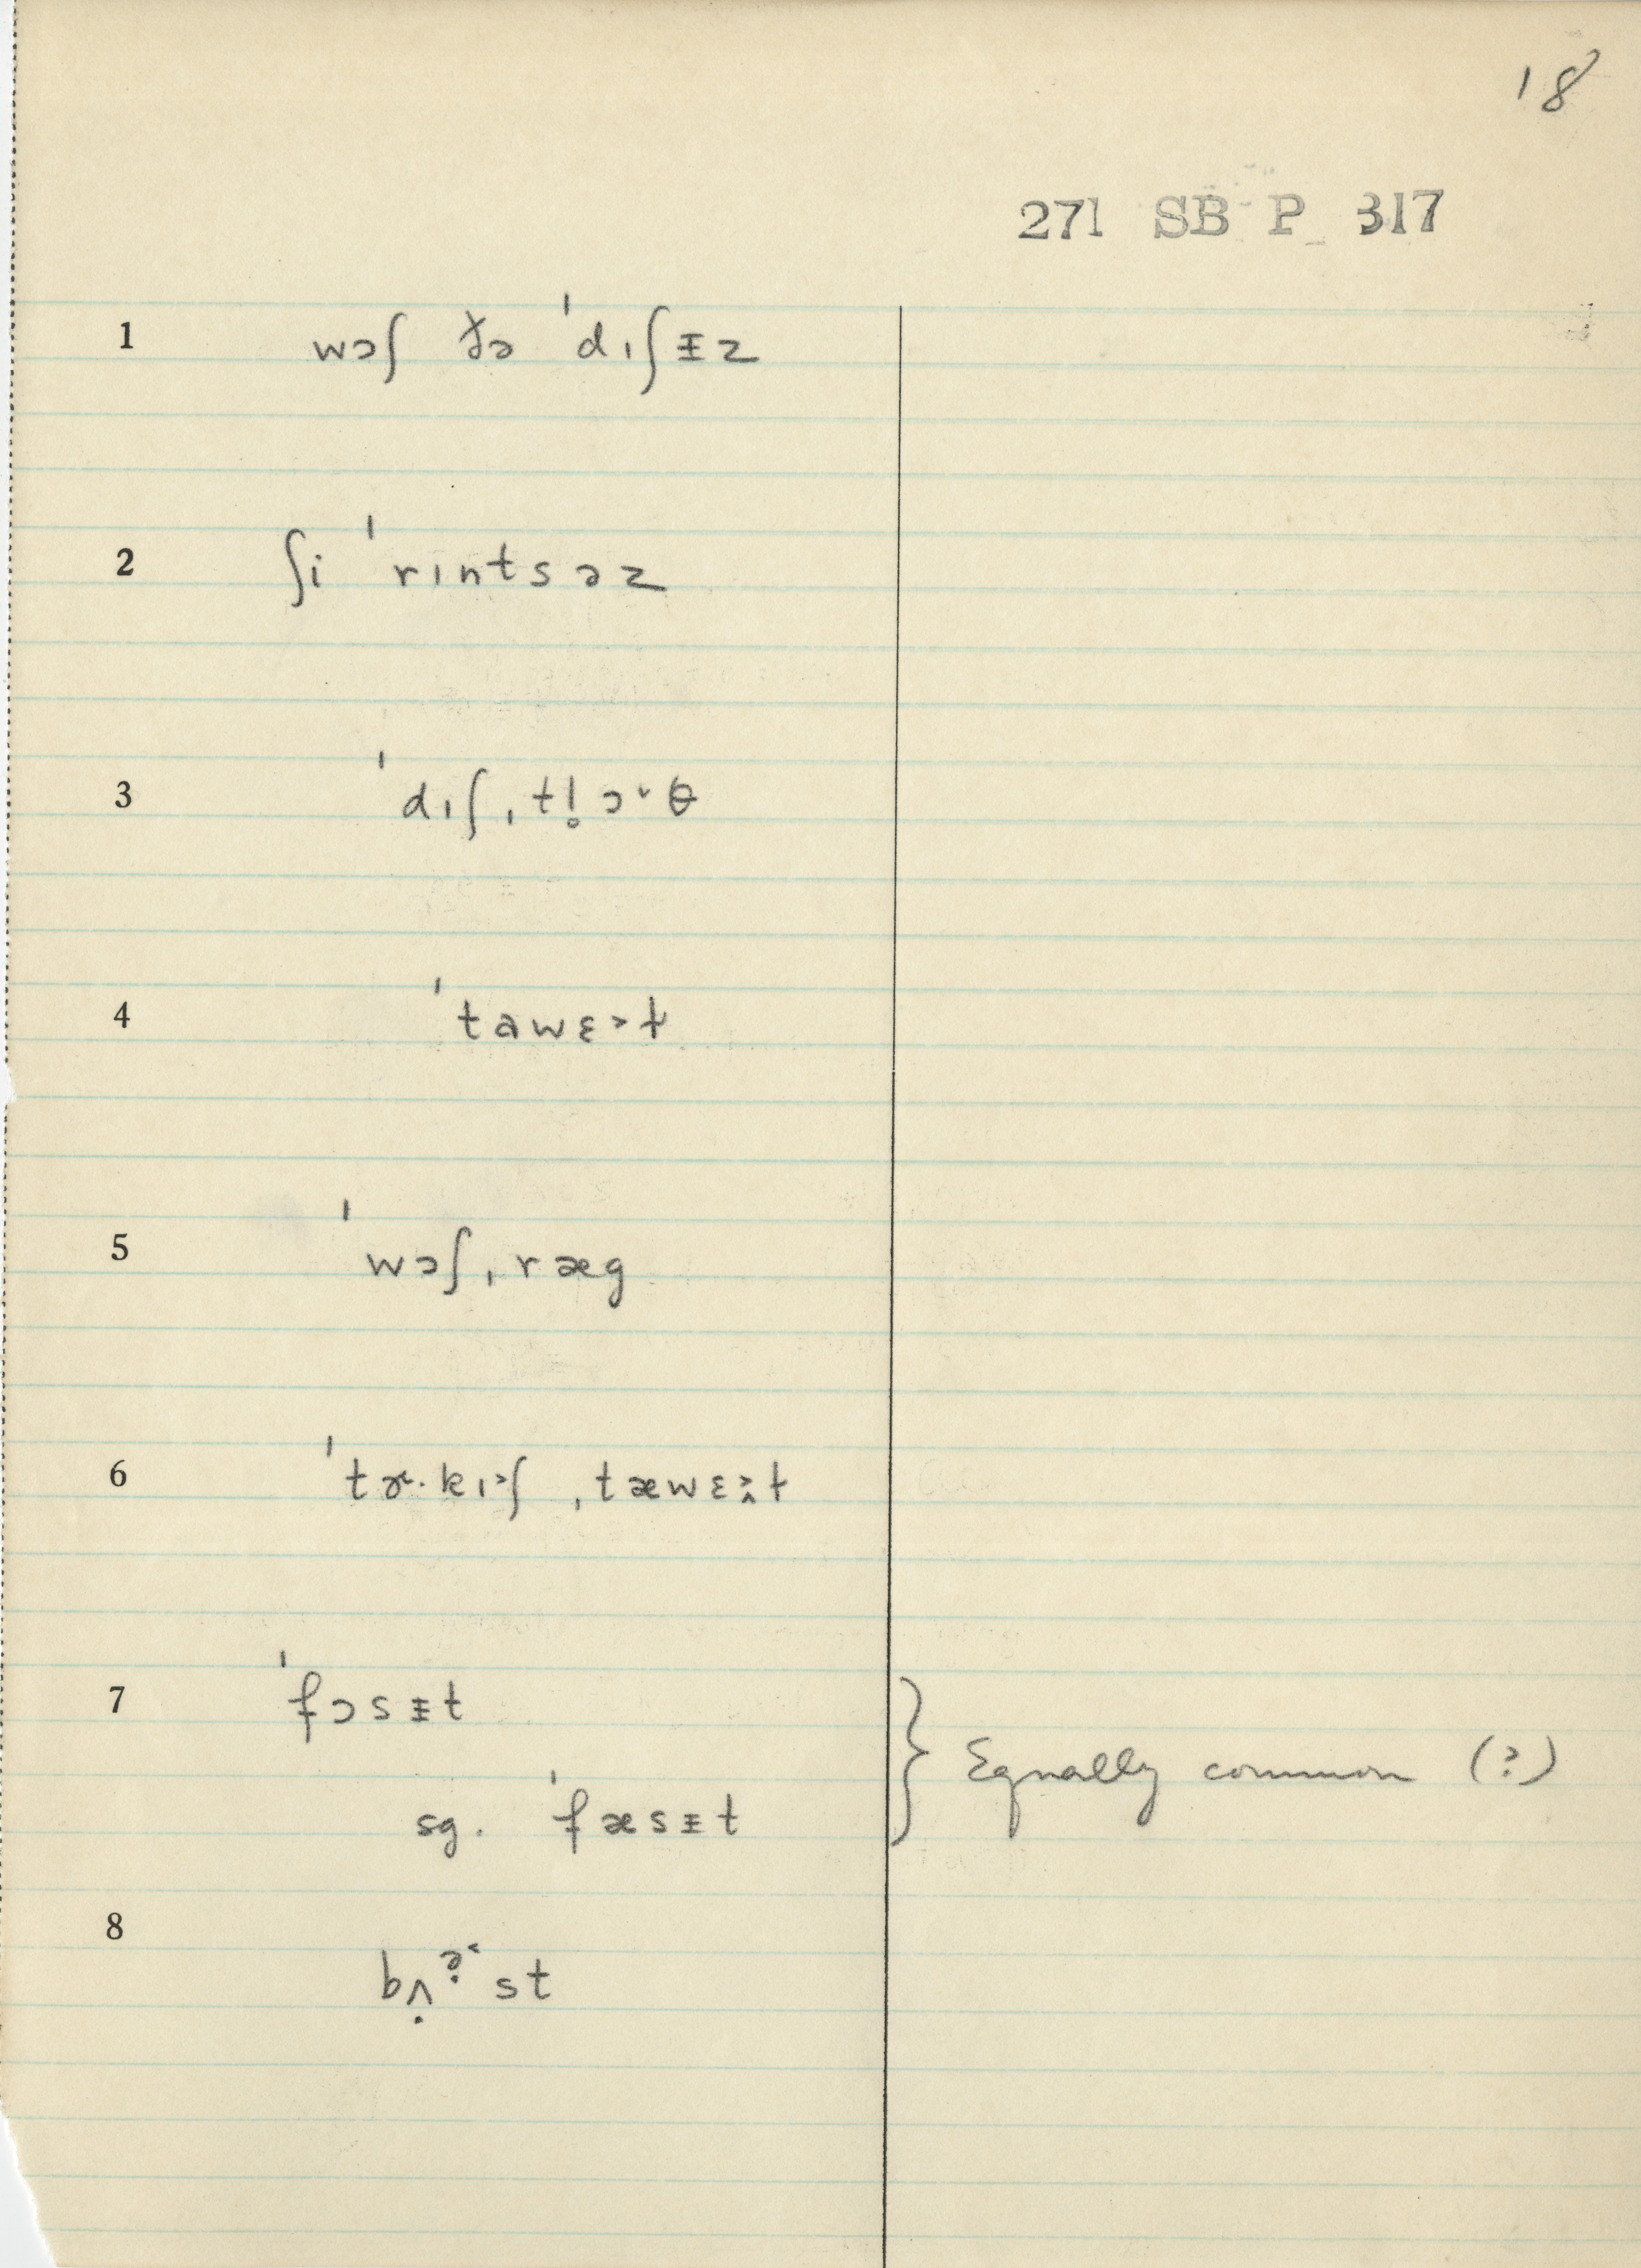 18
271 SB P 317
1 wɔʃ ðə ˈdɪʃɪ̵z
2 ʃi ˈrɪntsəz
3 ˈdɪʃˌtl̥ɔ˅θ
4 ˈtawɛ˃ɫ
5 ˈwɔʃˌræg
6 ˈtɚ·kɪ˃ʃ ˌtæwɛ˃̭ɫ
7 ˈfɔsɪ̵t
sg. ˈfæsɪ̵t } Equally common (?)
8 bʌ̣ɚ̣˂st